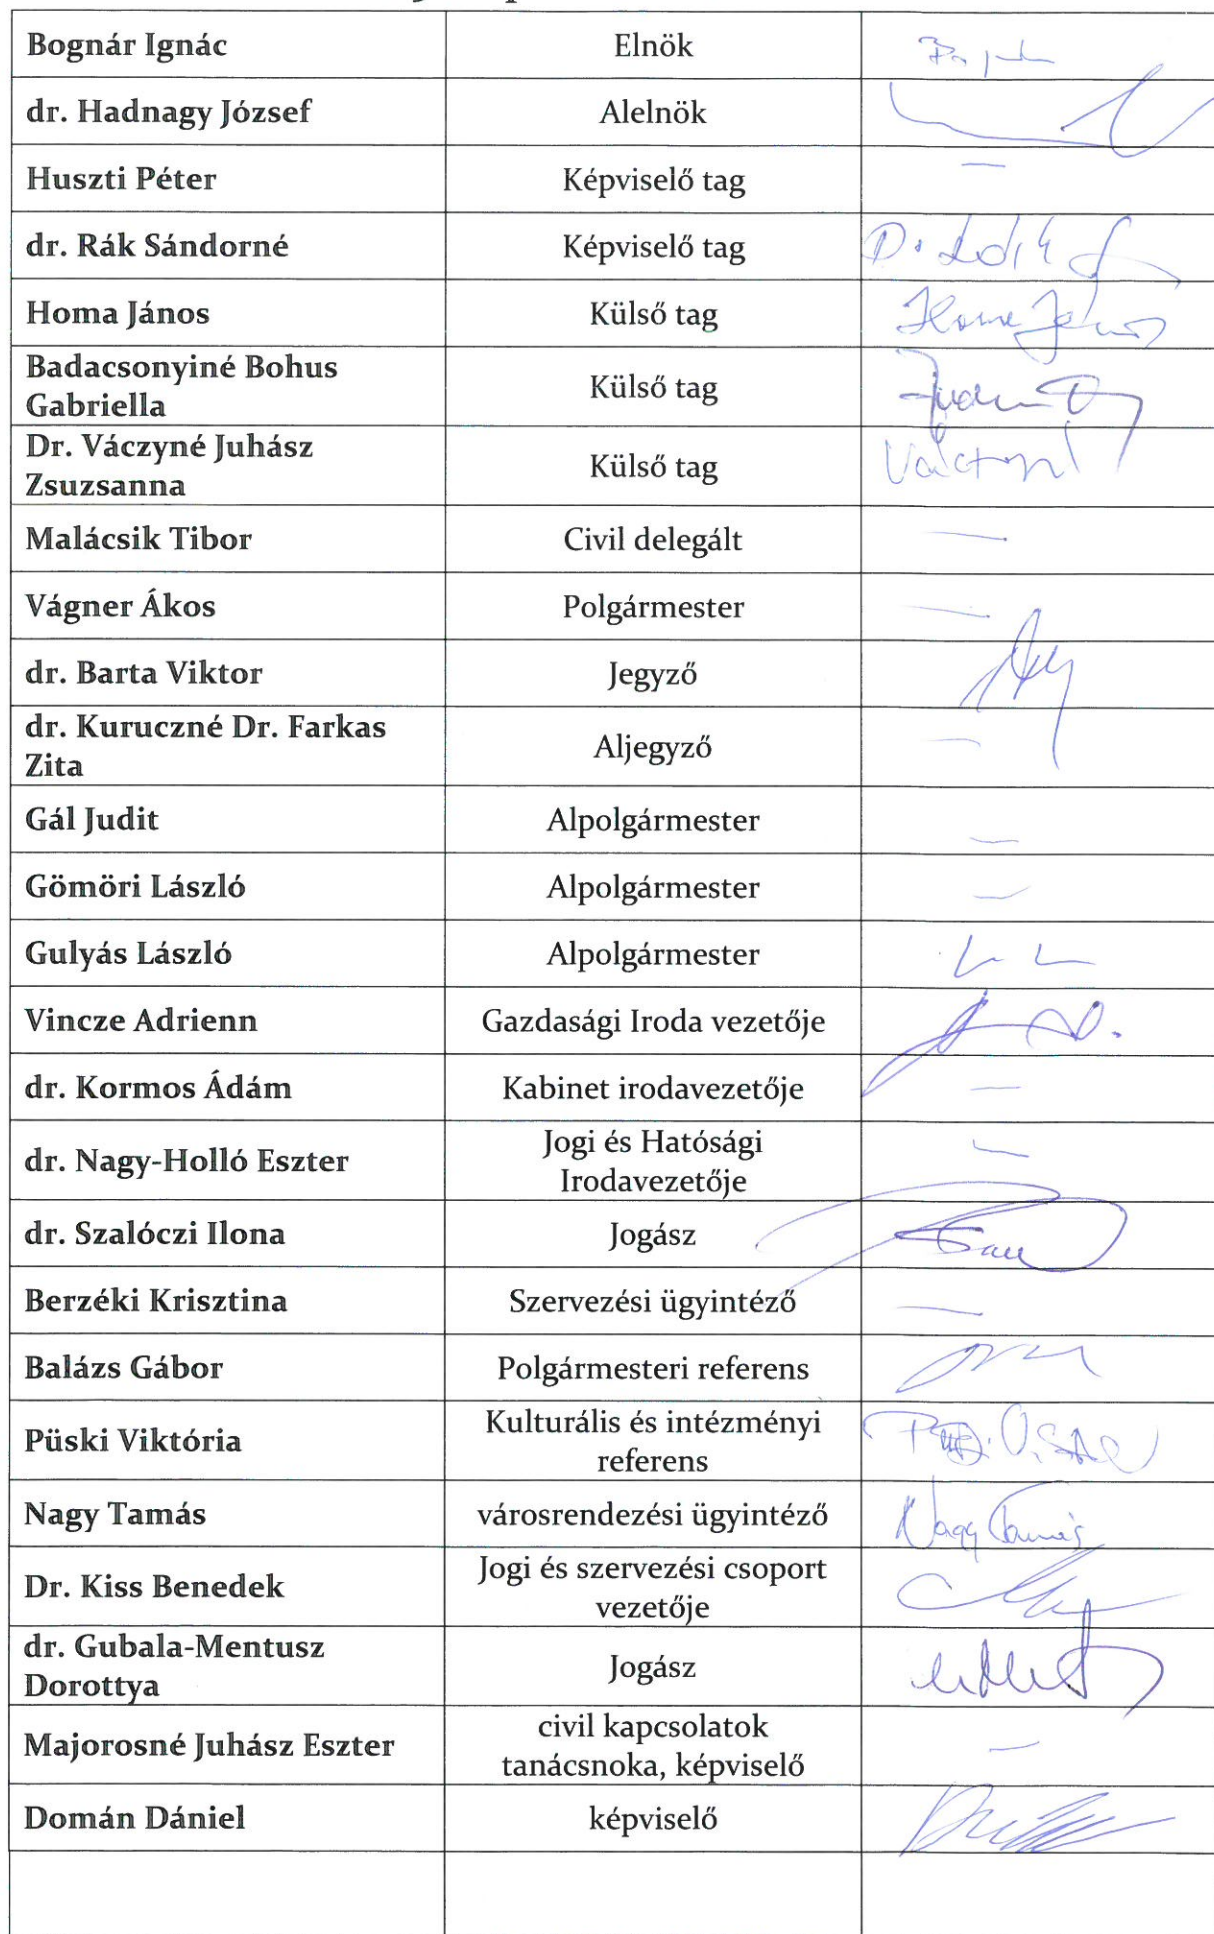 Bognár Ignác
Elnök
dr. Hadnagy József
Alelnök
Huszti Péter
Képviselő tag
—
dr. Rák Sándorné
Képviselő tag
Homa János
Külső tag
Homa János
Badacsonyiné Bohus
Gabriella
Külső tag
Dr. Váczyné Juhász
Zsuzsanna
Külső tag
Malácsik Tibor
Civil delegált
—
Vágner Ákos
Polgármester
—
dr. Barta Viktor
Jegyző
dr. Kuruczné Dr. Farkas
Zita
Aljegyző
—
Gál Judit
Alpolgármester
—
Gömöri László
Alpolgármester
—
Gulyás László
Alpolgármester
Vincze Adrienn
Gazdasági Iroda vezetője
dr. Kormos Ádám
Kabinet irodavezetője
—
dr. Nagy-Holló Eszter
Jogi és Hatósági
Irodavezetője
—
dr. Szalóczi Ilona
Jogász
Berzéki Krisztina
Szervezési ügyintéző
—
Balázs Gábor
Polgármesteri referens
Püski Viktória
Kulturális és intézményi
referens
Nagy Tamás
városrendezési ügyintéző
Nagy Tamás
Dr. Kiss Benedek
Jogi és szervezési csoport
vezetője
dr. Gubala-Mentusz
Dorottya
Jogász
Majorosné Juhász Eszter
civil kapcsolatok
tanácsnoka, képviselő
—
Domán Dániel
képviselő